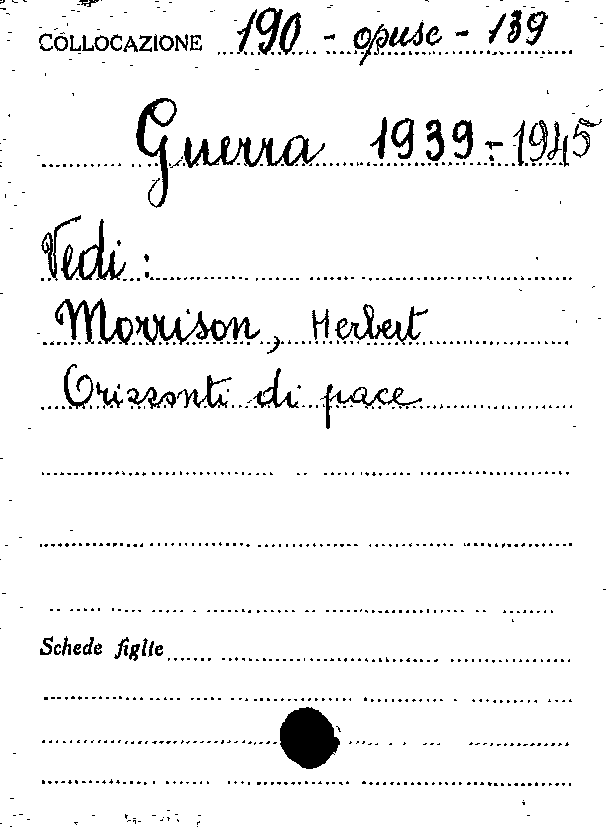 COLLOCAZIONE 190 - opusc - 139
Guerra 1939-1945
Vedi:
Morrison, Herbert
Orizzonti di pace
Schede figlie